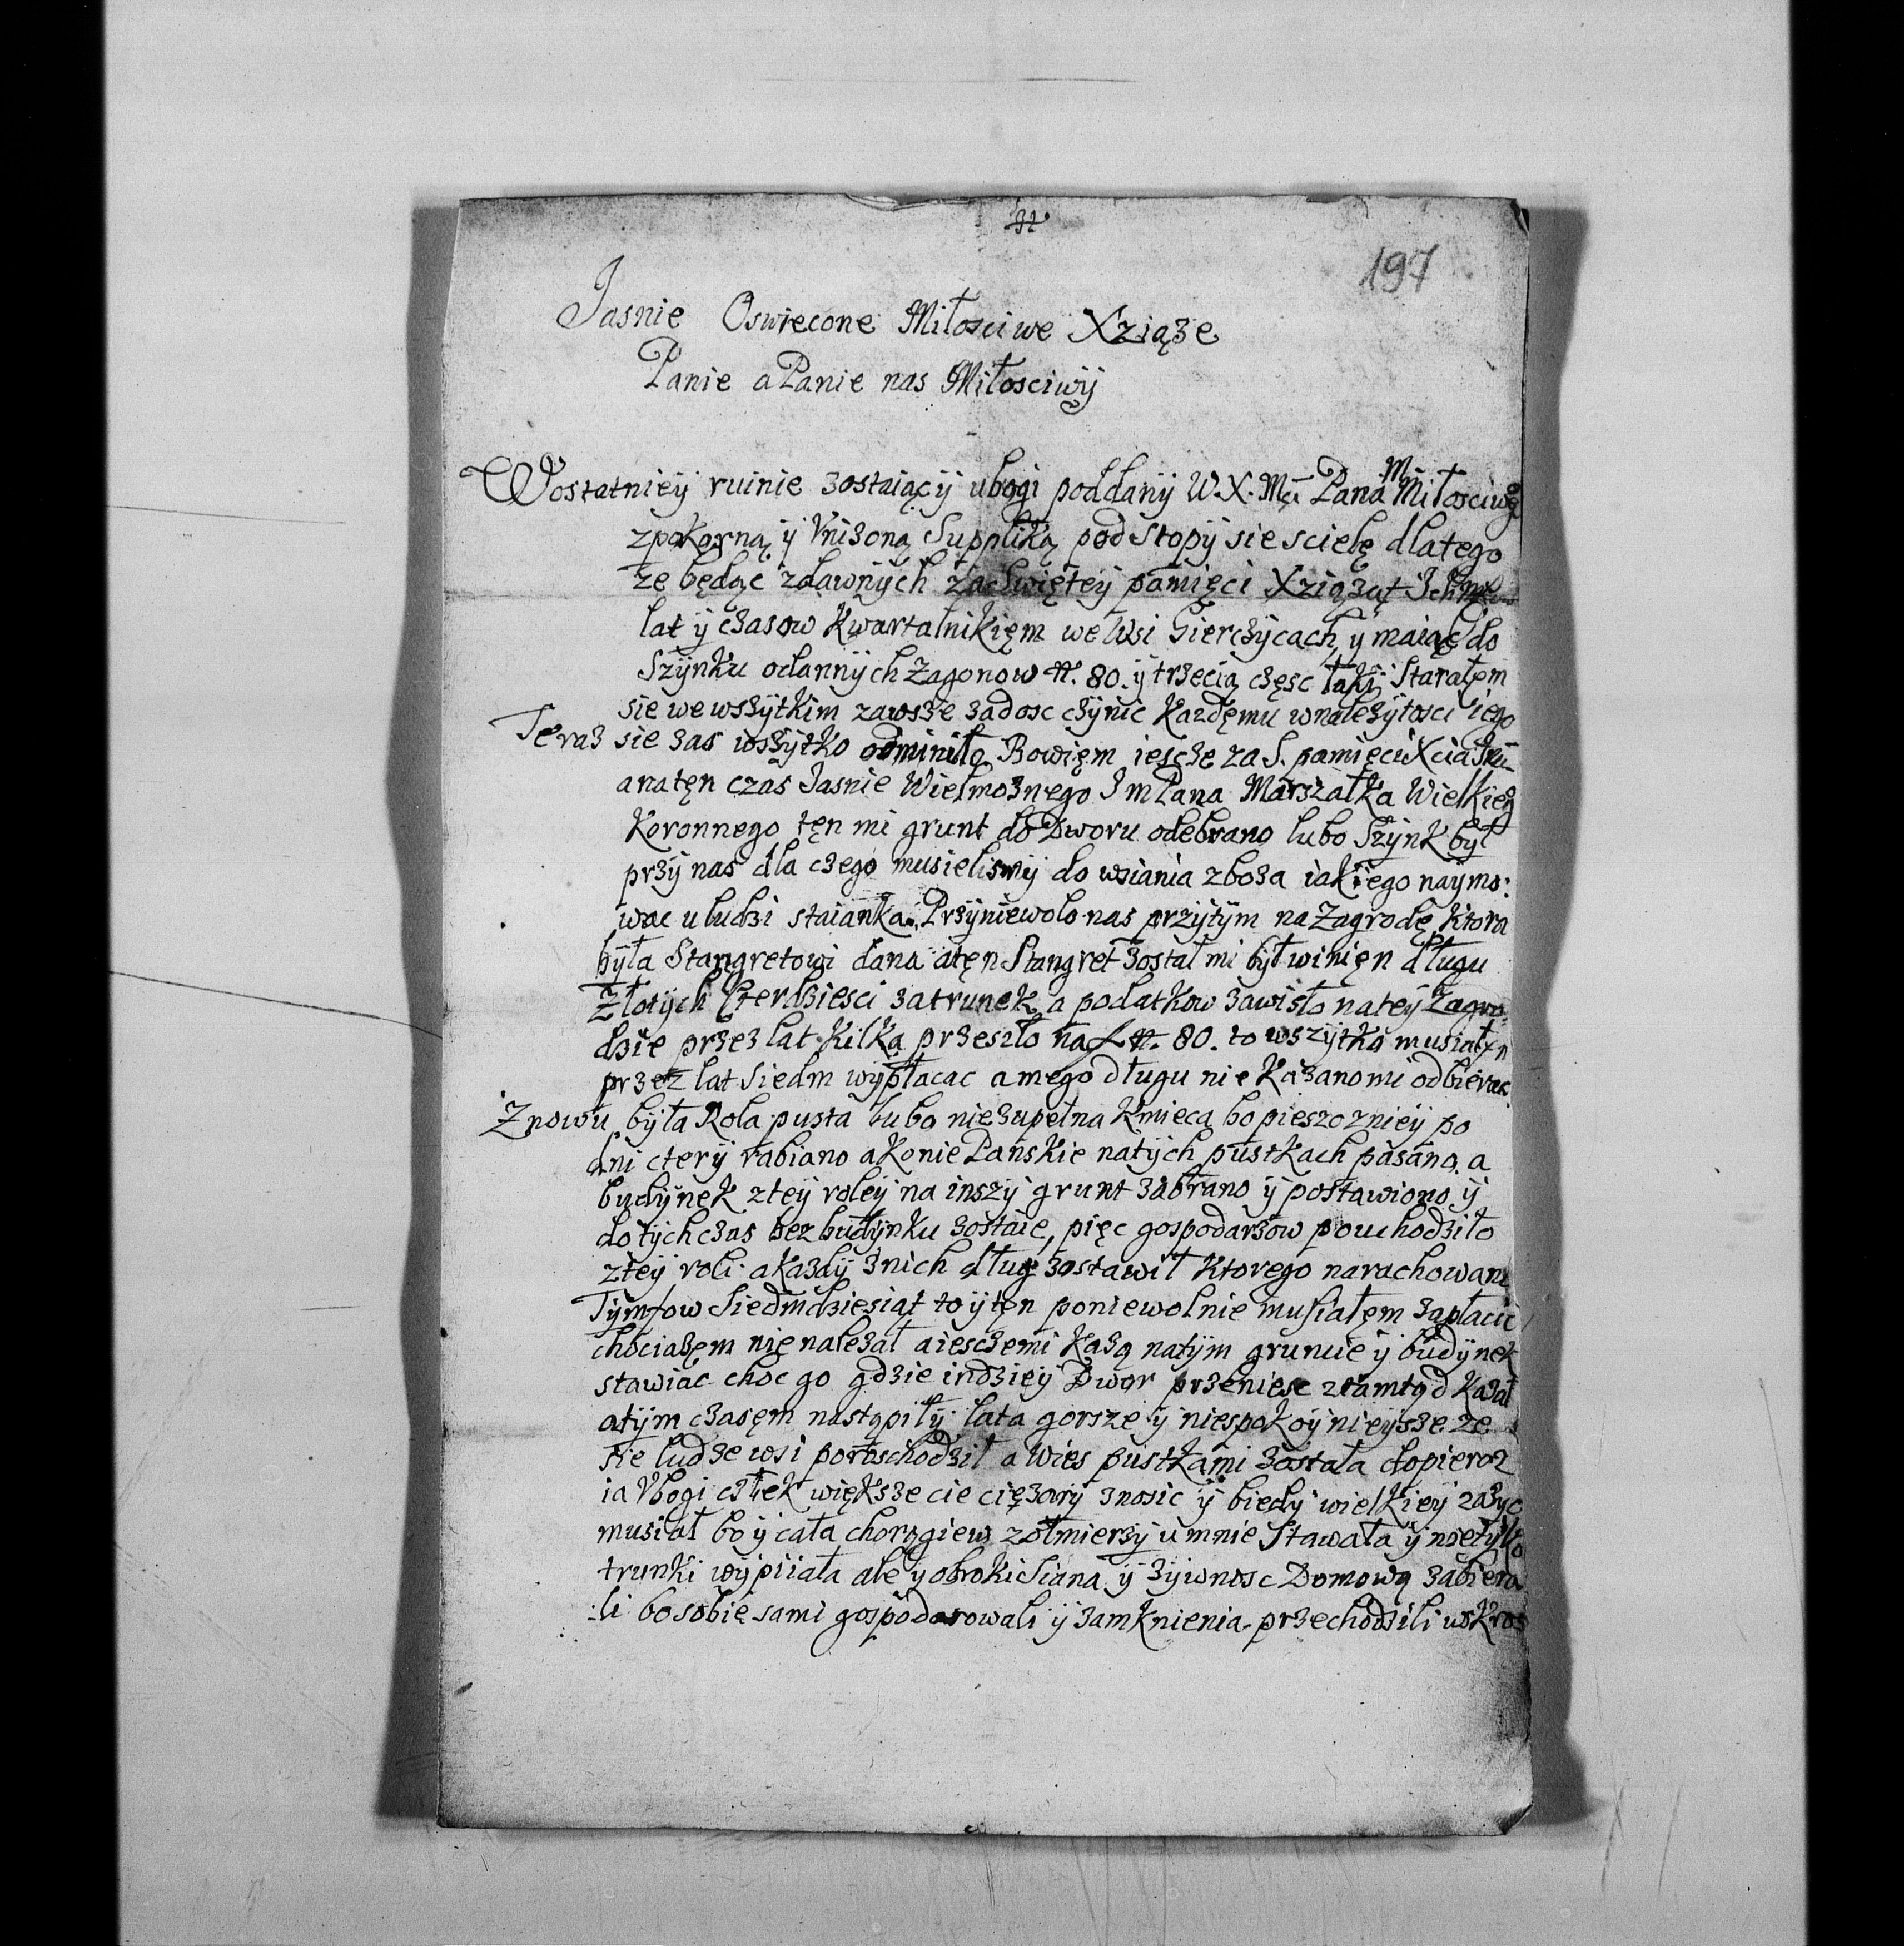 197
Jasnie Oswiecone Miłosciwe Xziąze
Panie a Panie nas Miłosciwÿ
Wostatnieÿ ruinie zostaiącÿ ubogi poddanÿ W.X. Mci Pana M Miłosciwe
zpokorną ÿ Vnizoną Suppliką pod Stopÿ sie scielę dlatego
ze będąc zdawnÿch za Swiętey pamięci Xziąząt
lat ÿ czasow Kwartalnikięm we Wsi Gierczÿcach y maiąc do
Szÿnku odannÿch Zagonow n. 80. ÿ trzecią częsc łąki Starałęm
sie we wszÿtkim zawsze zadosc czÿnic Kazdęmu wnalezÿtosci iego
Teraz sie zas wszÿtko odminiło Bowięm iescze za S. pamięci
anatęn czas Jasnie Wielmoznego Jm Pana Marszałka Wielkieg
Koronnego tęn mi grunt do Dworu odebrano lubo Szÿnk bÿł
przÿ nas dla czego musielismÿ do wsiania zboza iakiego naymo:
wac u ludzi staianka. Przÿniewolo nas przÿtÿm na Zagrodę Ktora
bÿła Stangretowi dana atęn Stangret Został mi bÿł winięn długu
Złotÿch Czterdziesci za trunek a podatkow zawisło nateÿ Zagro:
dzie przez lat Kilka przeszło na n. 80. to wszÿtko musiałem
przez lat Siedm wÿpłacac amego długu nie Kazano mi odbierac
Znowu bÿła Rola pusta lubo niezupełna Kmieca bo pieszo znieÿ po
dni cterÿ rabiano a Konie Panskie natÿch pustkach pasano. a
budÿnek zteÿ roleÿ na inszÿ grunt zabrano ÿ postawiono ÿ
dotÿchczas bez budÿnku zostaie, pięc gospodarzow pouchodziło
zteÿ roli a kazdÿ znich dług zostawił Ktorego narachowano
Tÿmfow Siedmdziesiąt to ÿ tęn poniewolnie musiałęm zapłacic
chociazęm nie nalezał aieszczemi Kazą natÿm gruncie ÿ budÿnek
stawiac choc go gdzie indzieÿ Dwor przeniesc ztamtąd Kazał
atÿm czasęm nastąpiłÿ lata gorsze ÿ niespokoÿnieÿsze ze
sie ludze wsi porozchodził a Wies pustkami została dopieroz
ia Vbogi człek większe cie cięzarÿ znosic ÿ biedÿ wielkieÿ zazyc
musiał bo ÿ cała chorągiew zołmierzÿ u mnie Stawała ÿ nietÿlko
trunki wÿpiiała ale y obroki Siana ÿ zÿwnosc Domową zabiera
li bo sobie sami gospodarowali ÿ zamknienia przechodzili wskros